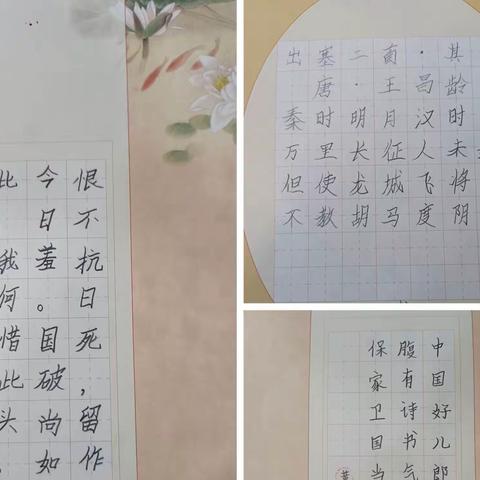 恨不抗日死，留作
今日羞。国破尚如
此我何惜此头。
出塞二首·其
唐·王昌龄
秦时明月汉时
万里长征人未
但使龙城飞将
不教胡马度阴
中国好儿郎
腹有诗书气
保家卫国当